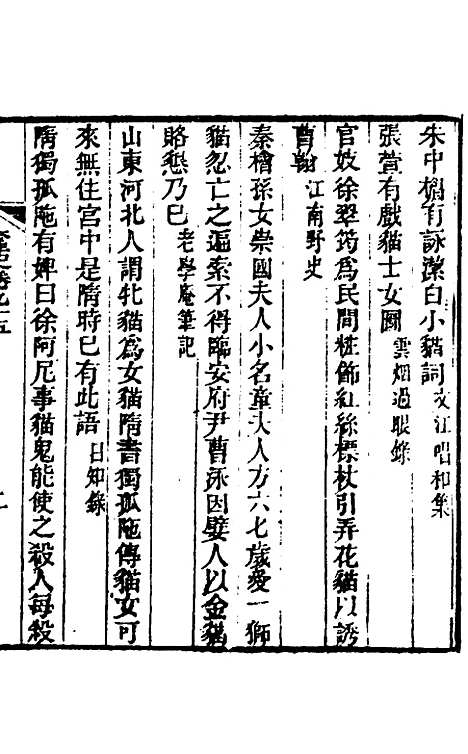 朱中楣有詠潔白小貓詞文江唱和集
張萱有戲貓士女圖雲烟過眼錄
官妓徐翠筠爲民間粧飾紅絲標杖引弄花貓以誘
曹翰江南野史
秦檜孫女崇國夫人小名童夫人方六七歲愛一獅
貓忽亡之遍索不得臨安府尹曹泳因嬖人以金貓
賂懇乃已老學庵筆記
山東河北人謂牝貓爲女貓隋書獨孤陁傳貓女可
來無住宮中是隋時已有此語日知錄
隋獨孤陁有婢曰徐阿尼事貓鬼能使之殺人每殺